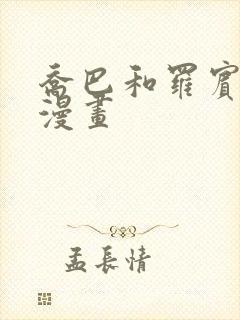 喬巴和羅賓
漫畫
孟長情